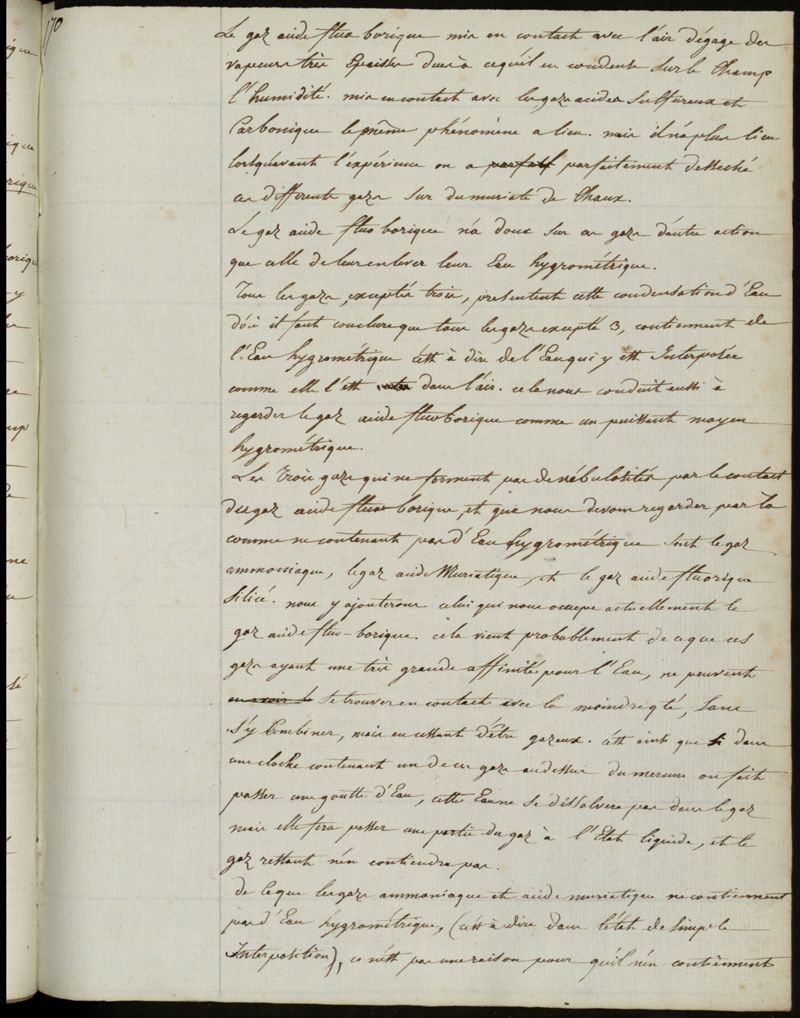 170
Le gaz acide fluo borique mis en contact avec l'air dégage des
vapeurs très Epaisses dues à ce qu'il en condense sur le Champ
l'humidité. mis en contact avec les gazs acides Sulfureux et
Carbonique le même phénomène a lieu. mais il n'a plus lieu
lorsqu'avant l'expérience on a parfait parfaitement desséché
ces différents gazs sur du muriate de Chaux.
Le gaz acide fluo borique n'a donc sur ces gazs d'autre action
que celle de leur enlever leur Eau hygrométrique.
Tous les gazs, exceptés trois, présentent cette condensation d'Eau
d'où il faut conclure que tous les gazs excepté 3, contiennent de
l'Eau hygrométrique c'est à dire de l'Eau qui y est Interposée
comme elle l'est dans l'air. cela nous conduit aussi à
regarder le gaz acide fluo borique comme un puissant moyen
hygrométrique.
Les Trois gazs qui ne forment pas de nébulosités par le contact
du gaz acide fluo borique, et que nous devons regarder par là
comme ne contenant pas d'Eau hygrométrique sont le gaz
ammoniaque, le gaz acide Muriatique, et le gaz acide fluorique
Silicé. nous y ajouterons celui qui nous occupe actuellement le
gaz acide fluo-borique. cela vient probablement de ce que ces
gazs ayant une très grande affinité pour l'Eau, ne peuvent
en avoir le se trouver en contact avec la moindre qté, Sans
s'y Combiner, mais en cessant d'être gazeux. c'est ainsi que si dans
une cloche contenant un de ces gazs au dessus du mercure on fait
passer une goutte d'Eau, cette Eau ne se dissolvera pas dans le gaz
mais elle fera passer une partie du gaz à l'Etat liquide, et le
gaz restant n'en contiendra pas.
de ce que les gazs ammoniaque et acide muriatique ne contiennent
pas d'Eau hygrométrique, (c'est à dire dans l'état de simple
Interposition), ce n'est pas une raison pour qu'il n'en contiennent